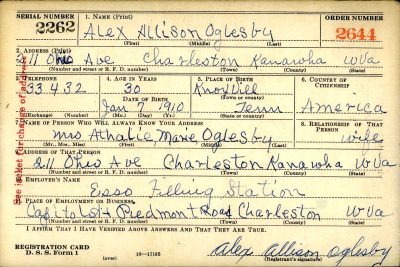 SERIAL NUMBER 1. NAME (Print) ORDER NUMBER
2262 Alex Allison Oglesby 2644
(First) (Middle) (Last)
2. ADDRESS (Print)
211 Ohio Ave Charleston Kanawha WVa
(Number and street or R. F. D. number) (Town) (County) (State)
3. TELEPHONE 4. AGE IN YEARS 5. PLACE OF BIRTH 6. COUNTRY OF CITIZENSHIP
33432 30 Knoxvill
DATE OF BIRTH (Town or county)
Jan 7 1910 Tenn America
(Exchange) (Number) (Mo.) (Day) (Yr.) (State or country)
7. NAME OF PERSON WHO WILL ALWAYS KNOW YOUR ADDRESS 8. RELATIONSHIP OF THAT PERSON
Mrs Athalie Marie Oglesby wife
(Mr., Mrs., Miss) (First) (Middle) (Last)
9. ADDRESS OF THAT PERSON
211 Ohio Ave Charleston Kanawha WVa
(Number and street or R. F. D. number) (Town) (County) (State)
10. EMPLOYER'S NAME
Esso Filling Station
11. PLACE OF EMPLOYMENT OR BUSINESS
Capitol St Piedmont Road Charleston WVa
(Number and street or R. F. D. number) (Town) (County) (State)
I AFFIRM THAT I HAVE VERIFIED ABOVE ANSWERS AND THAT THEY ARE TRUE.
REGISTRATION CARD
D. S. S. Form 1 16—17105 Alex Allison Oglesby
(Registrant's signature)
See jacket for change of address